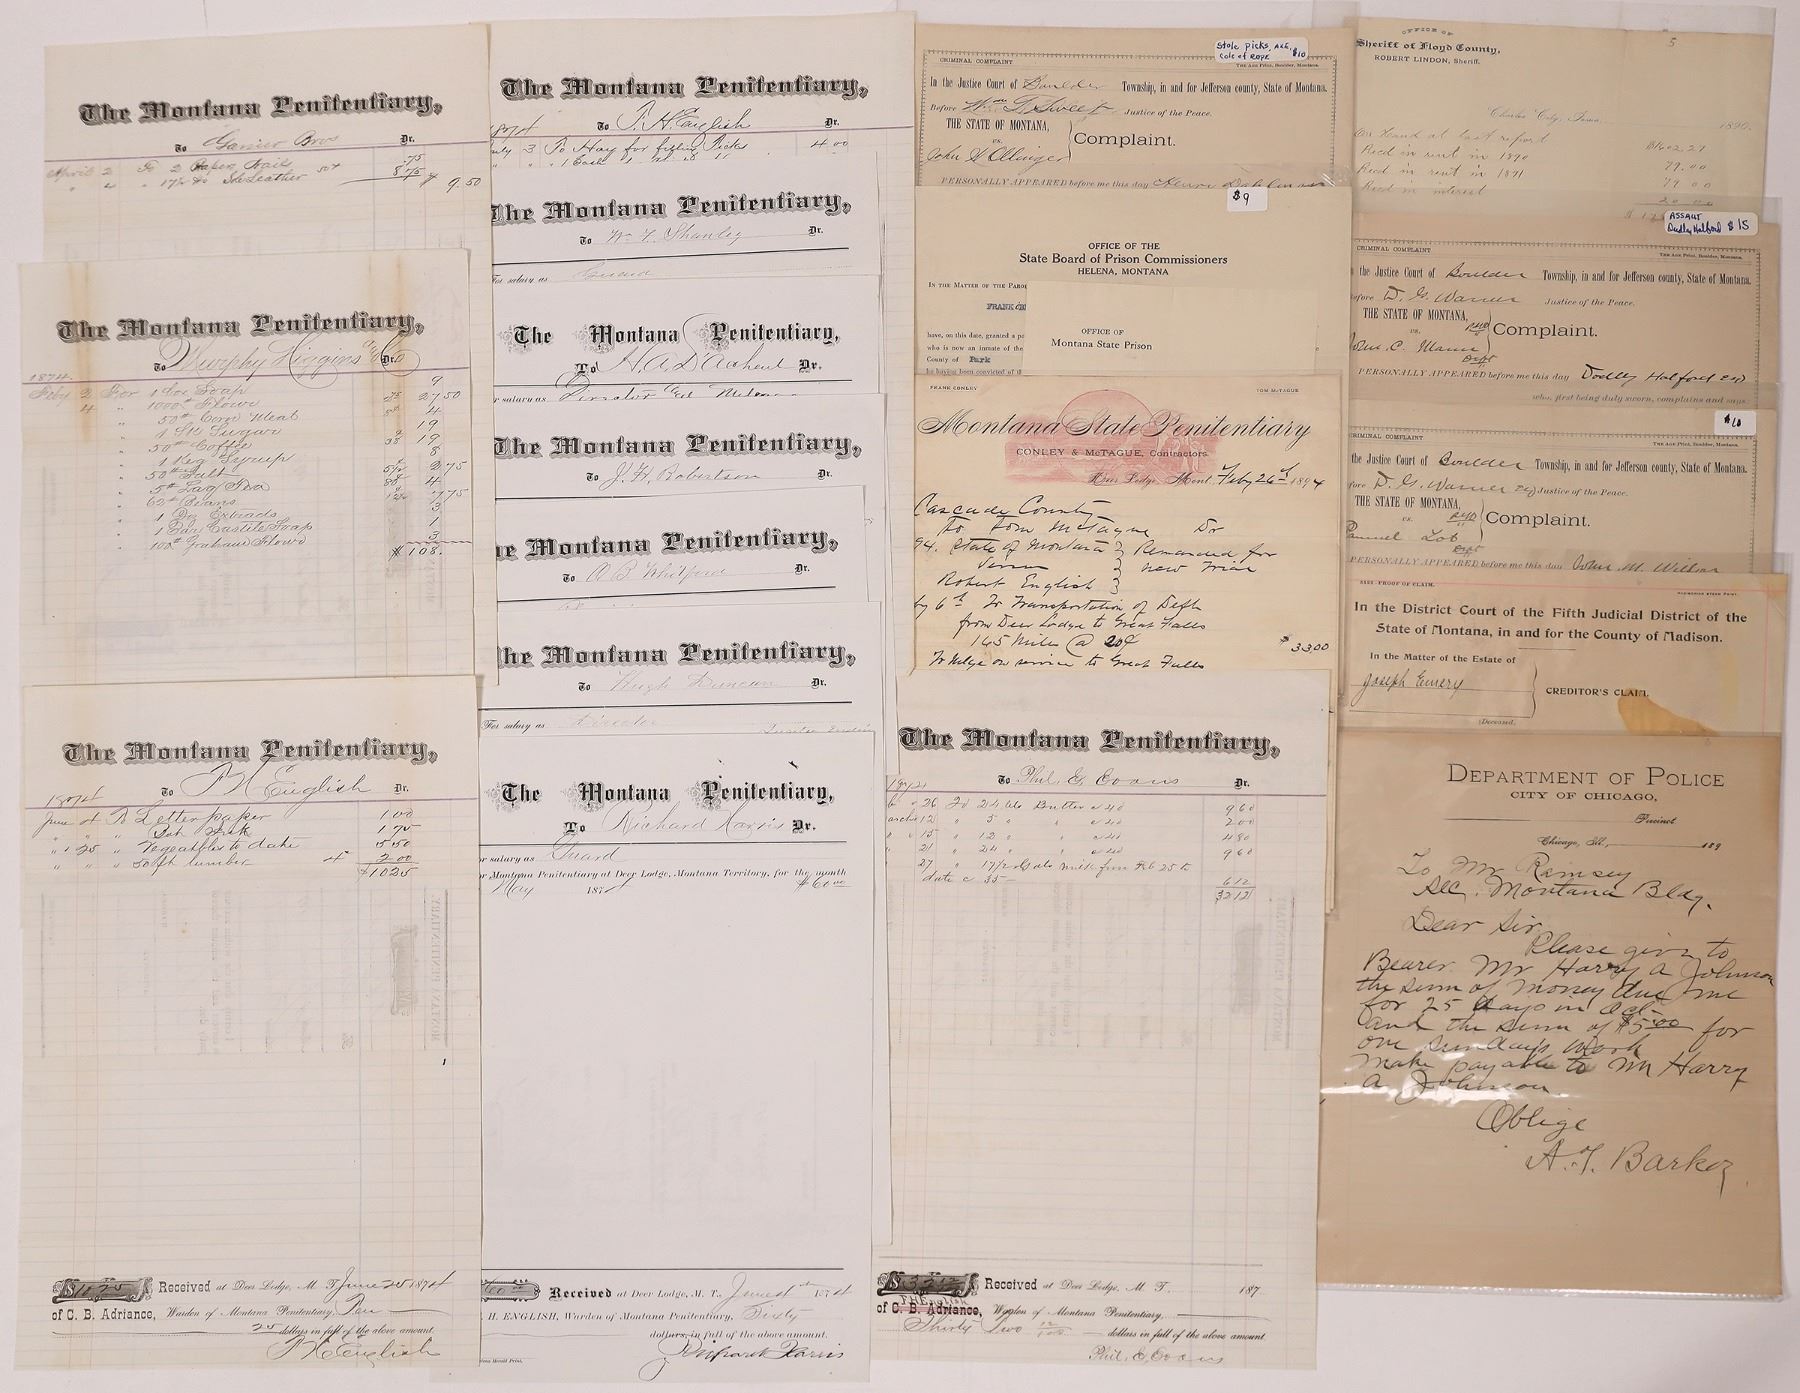 The Montana Penitentiary,
To Garnier Bros Dr.
April 2 To 2 Paper Nails .75
" 4 " 17½ lb Sole Leather 50¢ 8.75 $ 9.50
The Montana Penitentiary,
To Murphy Higgins & Co Dr.
1874.
Feby 2 For 1 Soap 9
4 " 1000# Flour 27.50
" 50# Corn Meal 4
" Sugar 19
" 50# Coffee 38 19
" 1 Keg Syrup 8
" 50# Salt 2.75
" 5# Tea 4
" 62# Beans 7.75
" 1 Doz Extracts 3
" 1 Bar Castile Soap 1
" 100# Graham Flour 3
$108.
The Montana Penitentiary,
To P H English Dr.
1874
June 4 To Letter paper 1.00
" " " Ink 1.75
" 25 " Vegetables to date 5.50
" " " 50 ft lumber 4 2.00
$10.25
$10.25 Received at Deer Lodge, M. T. June 25 1874
of C. B. Adriance, Warden of Montana Penitentiary, Ten
25 dollars in full of the above amount.
P H English
The Montana Penitentiary,
1874 To P. H. English Dr.
July 3 To Hay for Picks 4.00
The Montana Penitentiary,
To Wm F. Shanley Dr.
For salary as Guard
The Montana Penitentiary,
To H. A. D'Acheul Dr.
r salary as Director
The Montana Penitentiary,
To J. H. Robertson Dr.
he Montana Penitentiary,
To A B Whitford Dr.
he Montana Penitentiary,
To Hugh Duncan Dr.
For salary as Director
The Montana Penitentiary,
To Richard Harris Dr.
r salary as Guard
r Montana Penitentiary at Deer Lodge, Montana Territory, for the month
May 1874 $60.00
60.00 Received at Deer Lodge, M. T., June 1st 1874
H. ENGLISH, Warden of Montana Penitentiary, Sixty
dollars, in full of the above amount.
Richard Harris
CRIMINAL COMPLAINT
Stole picks, axe, cole of rope $10
The Age Print, Boulder, Montana.
In the Justice Court of Boulder Township, in and for Jefferson county, State of Montana.
Before Wm T. Sweet, Justice of the Peace.
THE STATE OF MONTANA,
vs. Complaint.
John H Ollinger
PERSONALLY APPEARED before me this day Henry
$9
OFFICE OF THE
State Board of Prison Commissioners
HELENA, MONTANA
IN THE MATTER OF THE PARO
FRANK
have, on this date, granted a pa
who is now an inmate of the
County of Park
he having been convicted of th
OFFICE OF
Montana State Prison
FRANK CONLEY TOM McTAGUE
Montana State Penitentiary
CONLEY & McTAGUE, Contractors.
Deer Lodge, Mont. Feby 26th 1894
Cascade County
To Tom McTague Dr
94. State of Montana Remanded for
Versus new Trial
Robert English
by 6th To Transportation of Deft
from Deer Lodge to Great Falls
165 miles @ 20¢ $33.00
To Milge on service to Great Falls
The Montana Penitentiary,
To Phil. E. Evans Dr.
26 To 24 lbs Butter @ 40 9 60
12 " 5 " " @ 40 2 00
15 " 12 " " @ 40 4 80
21 " 24 " " @ 40 9 60
27 " 17½ Gals milk from Feb 25 to
date @ 35 6 12
32 12
32 12 Received at Deer Lodge, M. T. 187
P H English
of C. B. Adriance, Warden of Montana Penitentiary,
Thirty Two 12/100 dollars in full of the above amount
Phil. E. Evans
OFFICE OF
Sheriff of Floyd County,
ROBERT LINDON, Sheriff.
5
Charles City, Iowa 1890.
On hand at last report $1602.27
Recd in rent in 1890 79.00
Recd in rent in 1891 79.00
Recd in interest 20.00
ASSAUT
Dudley Halford $15
CRIMINAL COMPLAINT
The Age Print, Boulder, Montana.
the Justice Court of Boulder Township, in and for Jefferson county, State of Montana.
efore D. G. Warner Justice of the Peace.
THE STATE OF MONTANA,
vs. Complaint.
John C. Mann
PERSONALLY APPEARED before me this day Dudley Halford
who, first being duly sworn, complains and says:
$10
CRIMINAL COMPLAINT
The Age Print, Boulder, Montana.
the Justice Court of Boulder Township, in and for Jefferson county, State of Montana.
fore D. G. Warner Esq Justice of the Peace.
THE STATE OF MONTANA,
vs. Complaint.
Samuel Lot
PERSONALLY APPEARED before me this day John M. Wilson
PROOF OF CLAIM.
In the District Court of the Fifth Judicial District of the
State of Montana, in and for the County of Madison.
In the Matter of the Estate of
Joseph Emery
CREDITOR'S CLAIM.
Deceased.
DEPARTMENT OF POLICE
CITY OF CHICAGO,
Precinct
Chicago, Ill., 189
To Mr Ramsey
Sec. Montana Bldg.
Dear Sir.
Please give to
Bearer Mr Harry A Johnson
the sum of money due me
for 25 days in Oct
and the sum of $5.00 for
one sundays work
make payable to Mr Harry
A Johnson
Oblige
A. F. Barker